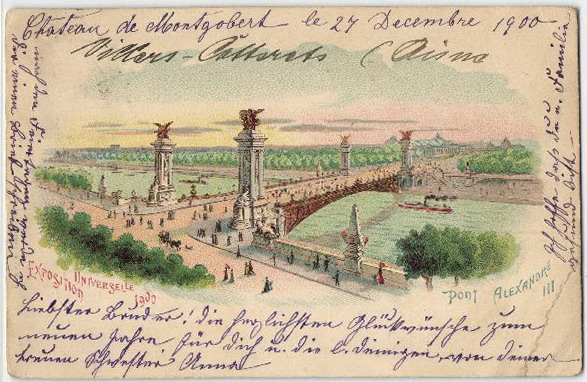 Château de Montgobert le 27 Decembre 1900
Villers-Cotterets (Aisne
EXPOSITION UNIVERSELLE 1900
PONT ALEXANDRE III
liebster Bruder! die herzlichsten Glückwünsche zum
neuen Jahre für Dich u. die l. Deinigen, von Deiner
treuen Schwester Anna
Ich hoffe daß du u. Familie